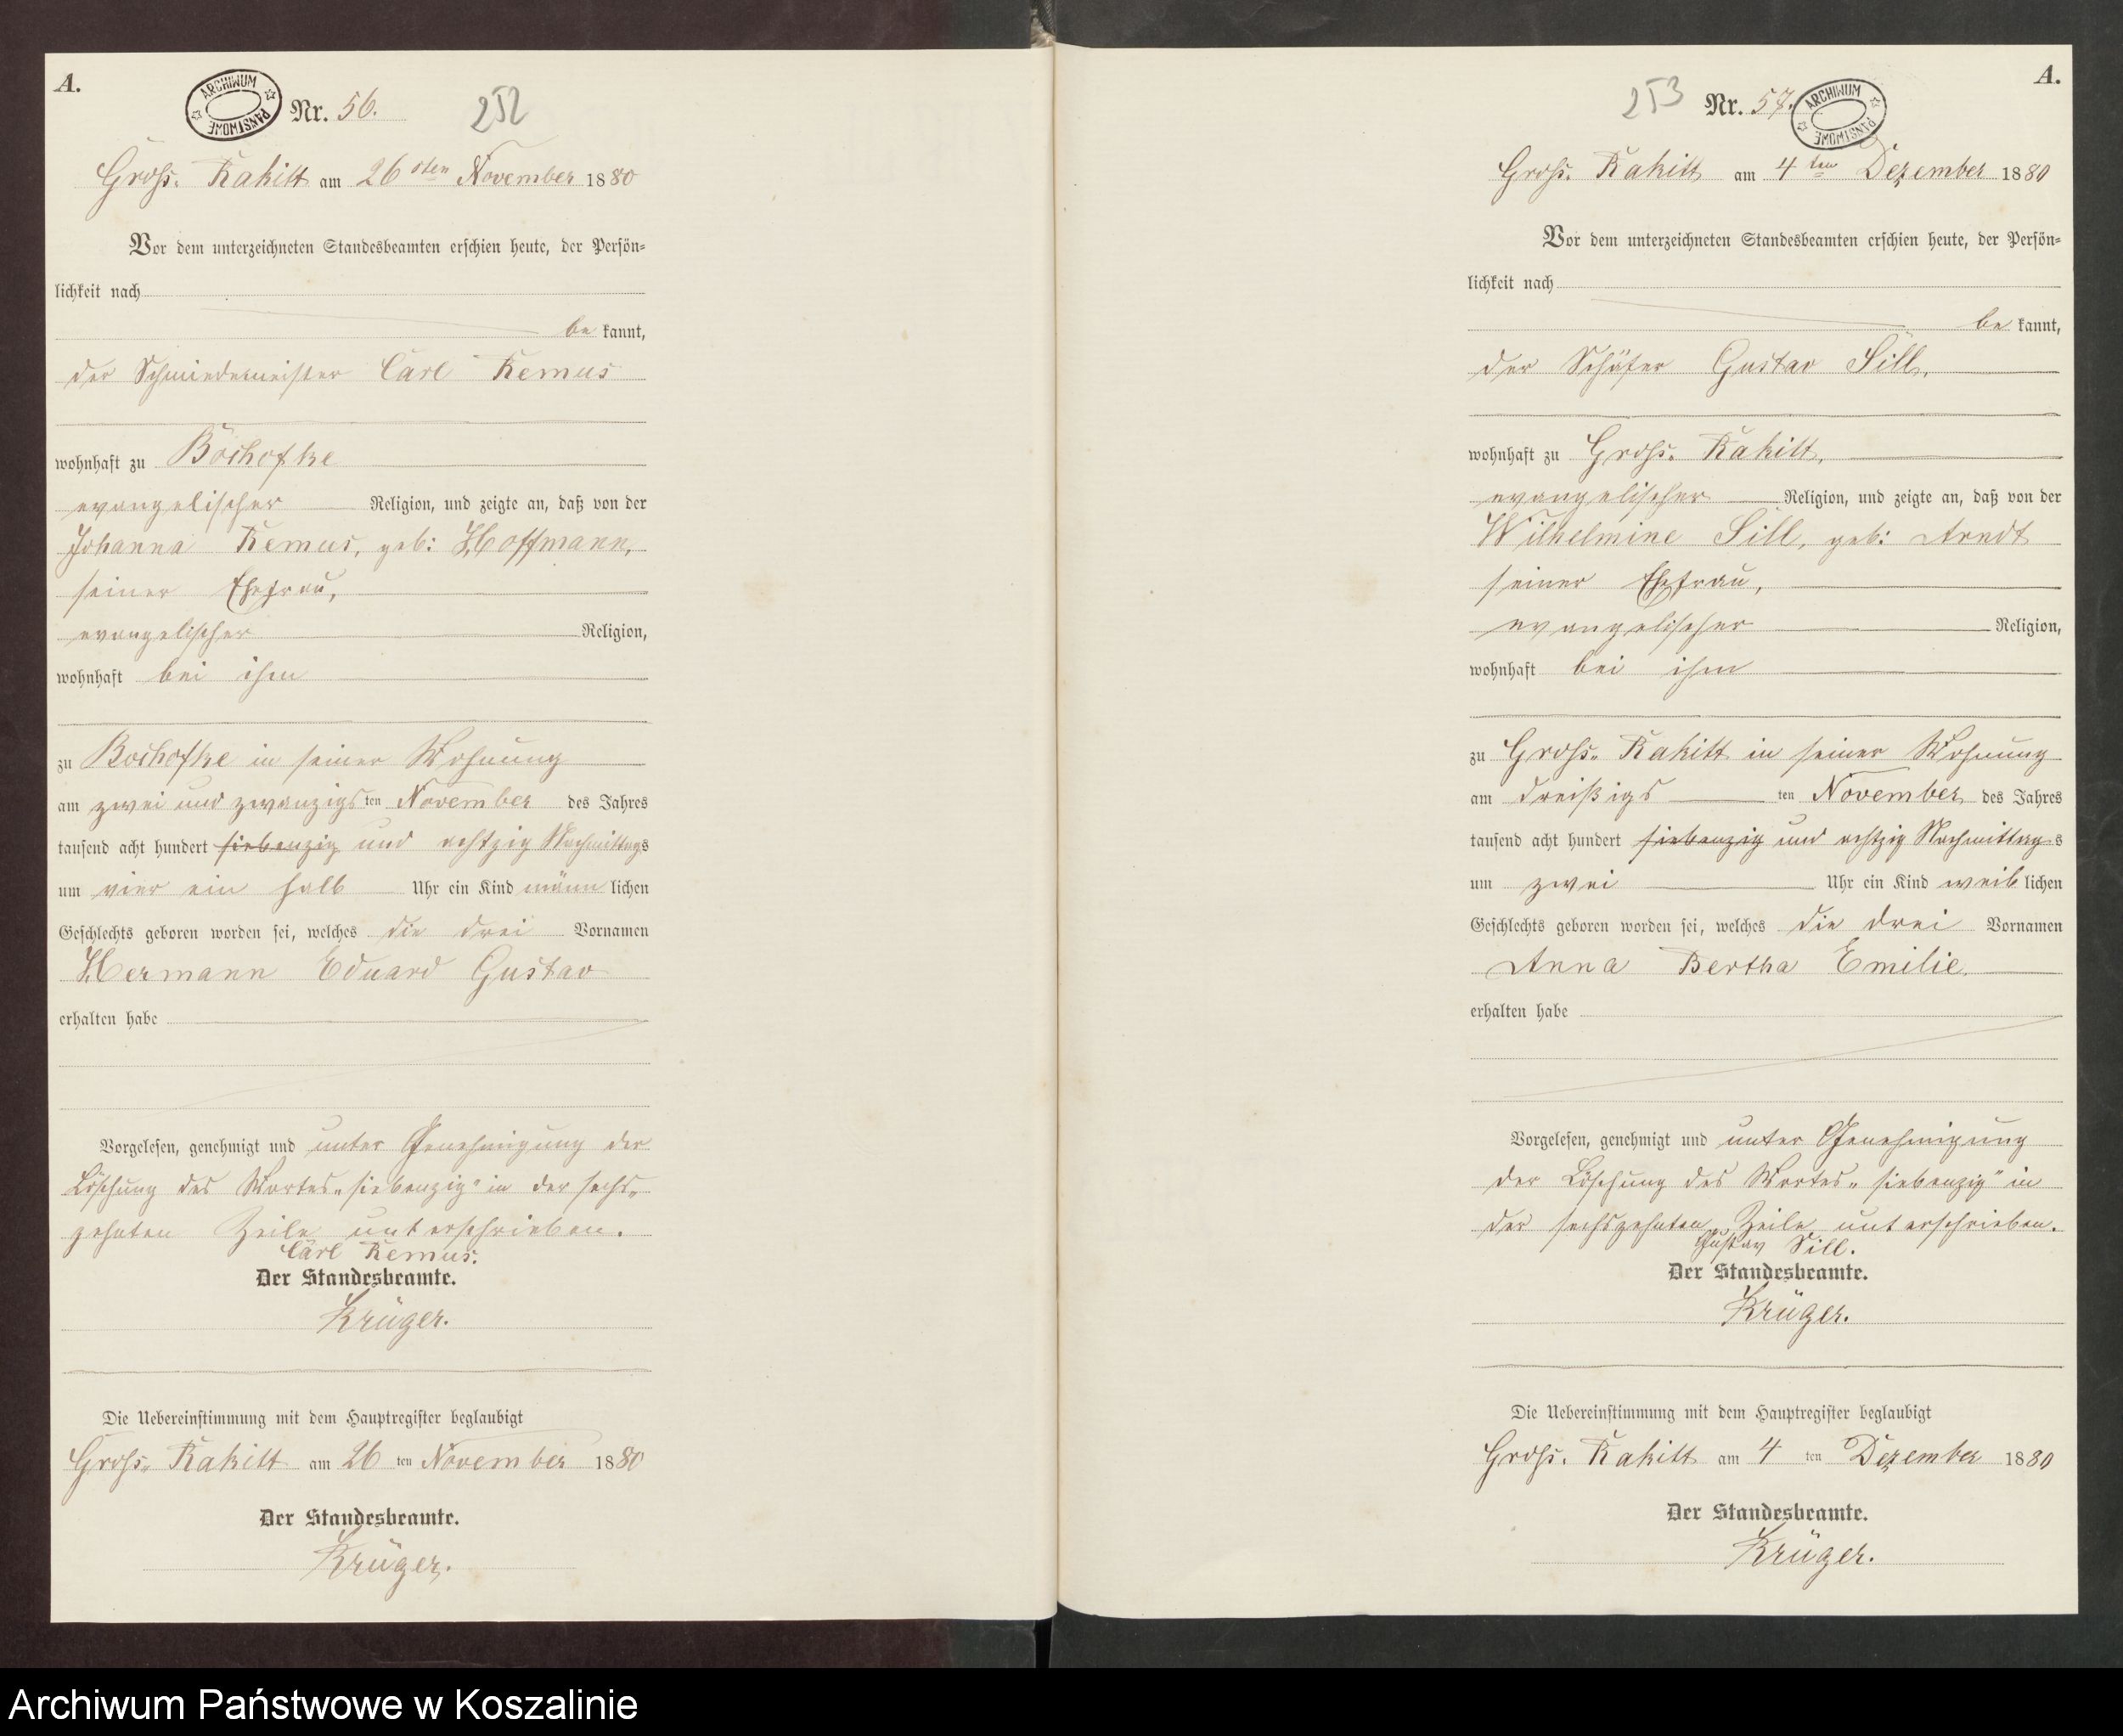 A.
ARCHIWUM PAŃSTWOWE
Nr. 56.
252
Gross. Rakitt am 26 sten November 1880
Vor dem unterzeichneten Standesbeamten erschien heute, der Persön-
lichkeit nach
be kannt,
der Schmiedemeister Carl Remus
wohnhaft zu Bochofke
evangelischer Religion, und zeigte an, daß von der
Johanna Remus, geb: Hoffmann,
seiner Ehefrau,
evangelischer Religion,
wohnhaft bei ihm
zu Bochofke in seiner Wohnung
am zwei und zwanzigs ten November des Jahres
tausend acht hundert siebenzig und achtzig Nachmittags
um vier ein halb Uhr ein Kind männ lichen
Geschlechts geboren worden sei, welches die drei Vornamen
Hermann Eduard Gustav
erhalten habe
Vorgelesen, genehmigt und unter Genehmigung der
Löschung des Wortes „siebenzig" in der sechs-
zehnten Zeile unterschrieben.
Carl Remus.
Der Standesbeamte.
Krüger.
Die Uebereinstimmung mit dem Hauptregister beglaubigt
Gross. Rakitt am 26 ten November 1880
Der Standesbeamte.
Krüger.
A.
253
Nr. 57.
ARCHIWUM PAŃSTWOWE
Gross. Rakitt am 4 ten Dezember 1880
Vor dem unterzeichneten Standesbeamten erschien heute, der Persön-
lichkeit nach
be kannt,
der Schäfer Gustav Sill,
wohnhaft zu Gross. Rakitt,
evangelischer Religion, und zeigte an, daß von der
Wilhelmine Sill, geb: Arndt
seiner Ehefrau,
evangelischer Religion,
wohnhaft bei ihm
zu Gross. Rakitt in seiner Wohnung
am dreißigs ten November des Jahres
tausend acht hundert siebenzig und achtzig Nachmittags
um zwei Uhr ein Kind weib lichen
Geschlechts geboren worden sei, welches die drei Vornamen
Anna Bertha Emilie
erhalten habe
Vorgelesen, genehmigt und unter Genehmigung
der Löschung des Wortes „siebenzig" in
der sechszehnten Zeile unterschrieben.
Gustav Sill.
Der Standesbeamte.
Krüger.
Die Uebereinstimmung mit dem Hauptregister beglaubigt
Gross. Rakitt am 4 ten Dezember 1880
Der Standesbeamte.
Krüger.
Archiwum Państwowe w Koszalinie